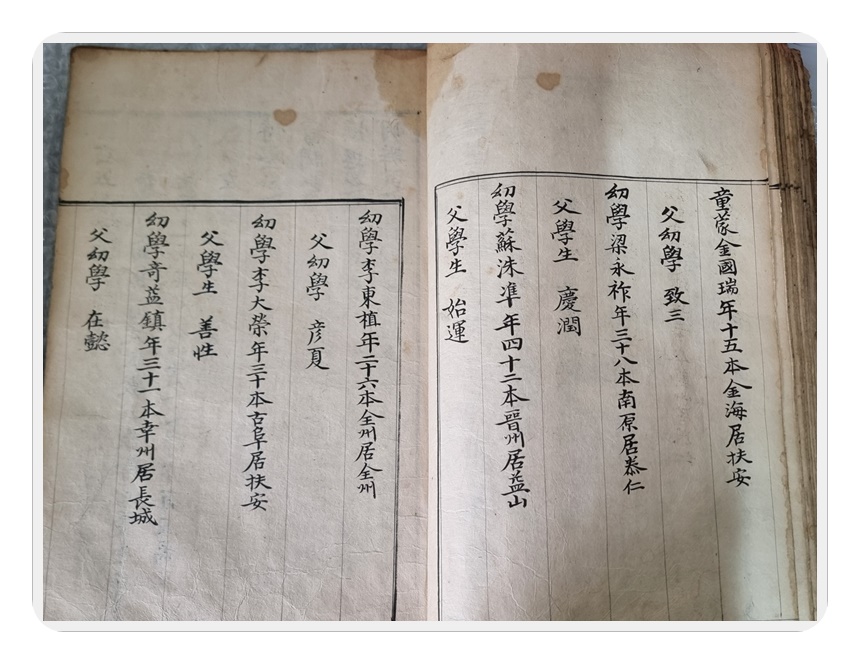 童蒙金國瑞年十五本金海居扶安
父幼學 致三
幼學梁永祚年三十八本南原居泰仁
父學生 慶潤
幼學蘇洙準年四十二本晉州居益山
父學生 始運
幼學李東植年二十六本全州居全州
父幼學 彦夏
幼學李大榮年三十本古阜居扶安
父學生 善性
幼學奇益鎮年三十一本幸州居長城
父幼學 在懿